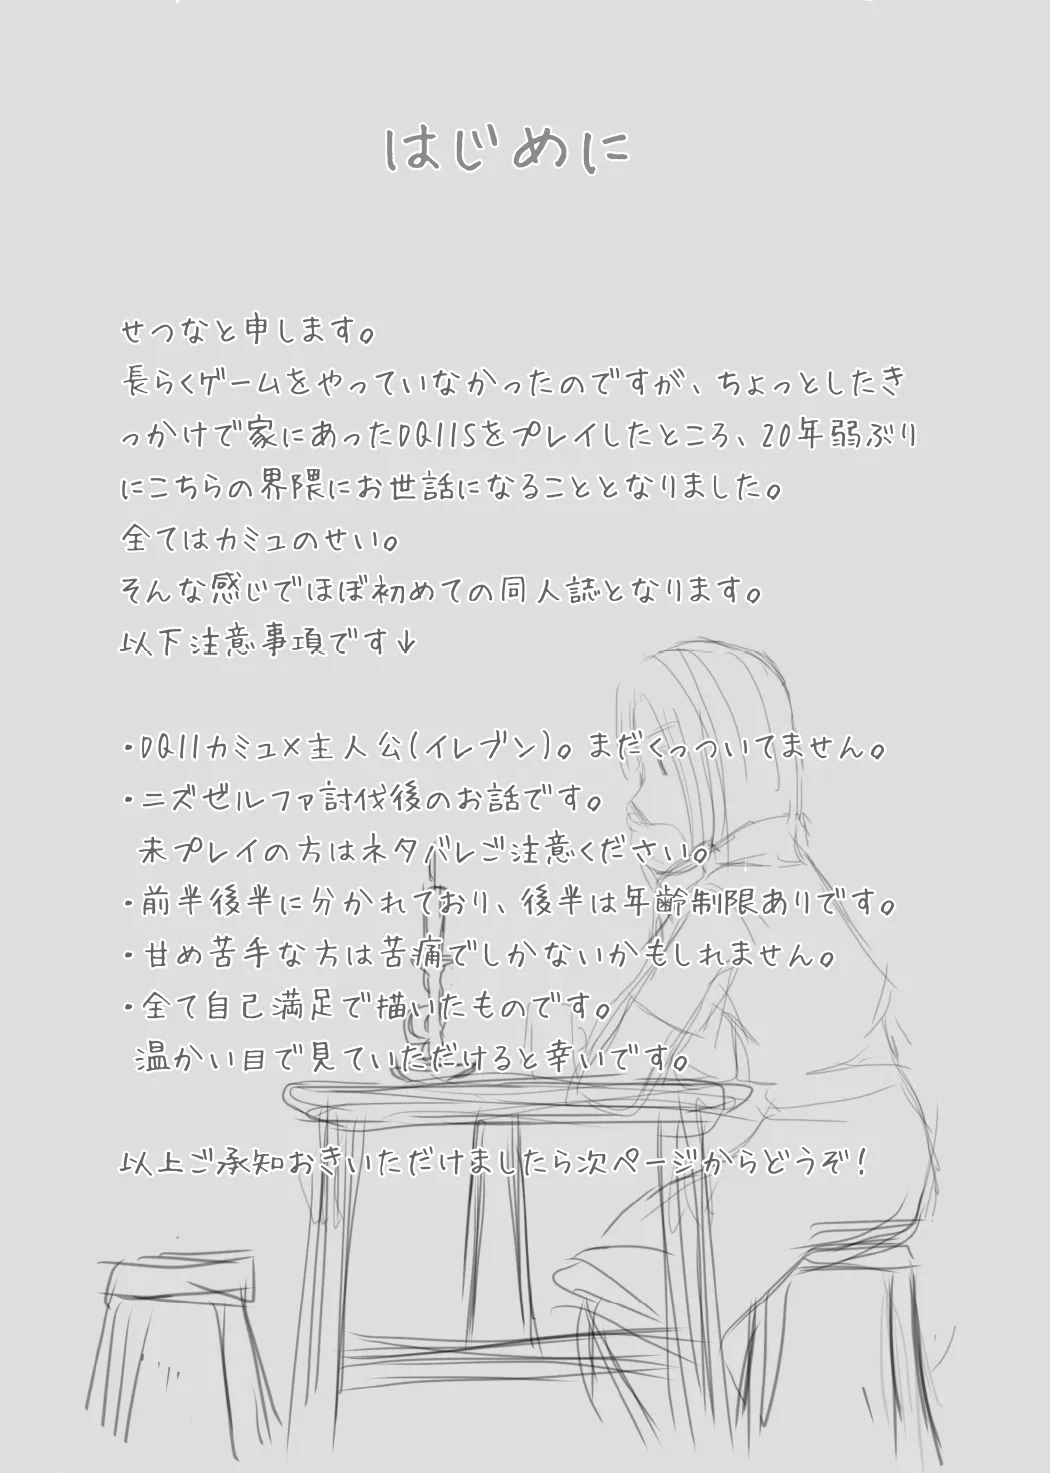 はじめに
せつなと申します。
長らくゲームをやっていなかったのですが、ちょっとしたき
っかけで家にあったDQ11Sをプレイしたところ、20年弱ぶり
にこちらの界隈にお世話になることとなりました。
全てはカミュのせい。
そんな感じでほぼ初めての同人誌となります。
以下注意事項です↓
・DQ11カミュ×主人公(イレブン)。まだくっついてません。
・ニズゼルファ討伐後のお話です。
未プレイの方はネタバレご注意ください。
・前半後半に分かれており、後半は年齢制限ありです。
・甘め苦手な方は苦痛でしかないかもしれません。
・全て自己満足で描いたものです。
温かい目で見ていただけると幸いです。
以上ご承知おきいただけましたら次ページからどうぞ!